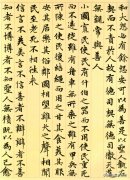 和大怨必有餘怨安可以為善是以聖人執左契
而不責於人故有德司契無德司徹天道無親
常與善人
小國寡民使有什伯之器而不用使民重死
而不遠徙雖有舟輿無所乘之雖有甲兵無所
陳之使民復結繩而用之甘其食美其服
安其居樂其俗鄰國相望雞犬之聲相聞
民至老死不相往來
信言不美美言不信善者不辯辯者不善
知者不博博者不知聖人無積既以為人己愈